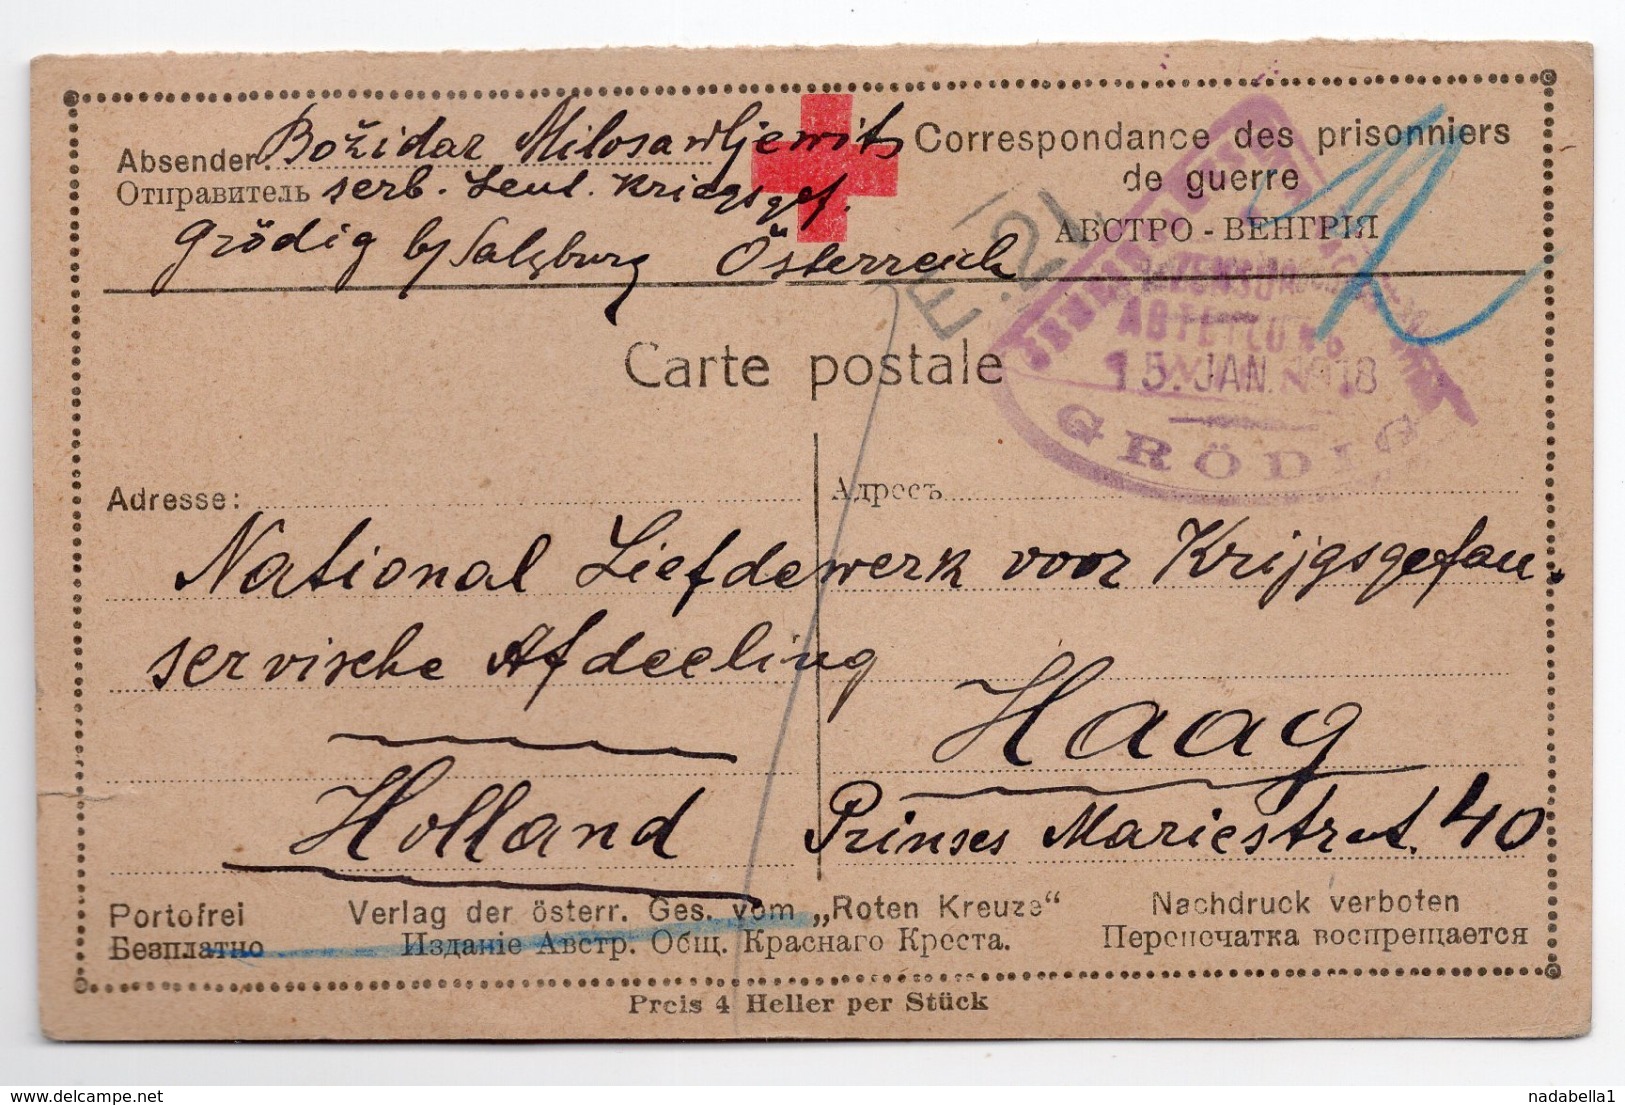 Absender: Božidar Milosawljewits
Отправитель serb. Leut. Kriegsgef.
Grödig b/ Salzburg Österreich
Correspondance des prisonniers
de guerre
АВСТРО - ВЕНГРІЯ
F. 21
Carte postale
ZENSUR
ABTEILUNG
15. JAN. 1918
WIEN
GRÖDIG
Adresse:
Адресъ
National Liefdewerk voor Krijgsgefan.
servische Afdeeling
Haag
Holland
Prinses Mariestrat. 40
Portofrei Verlag der österr. Ges. vom „Roten Kreuze“ Nachdruck verboten
Безплатно Изданіе Австр. Общ. Краснаго Креста. Перепечатка воспрещается
Preis 4 Heller per Stück
delcampe.net
nadabella1